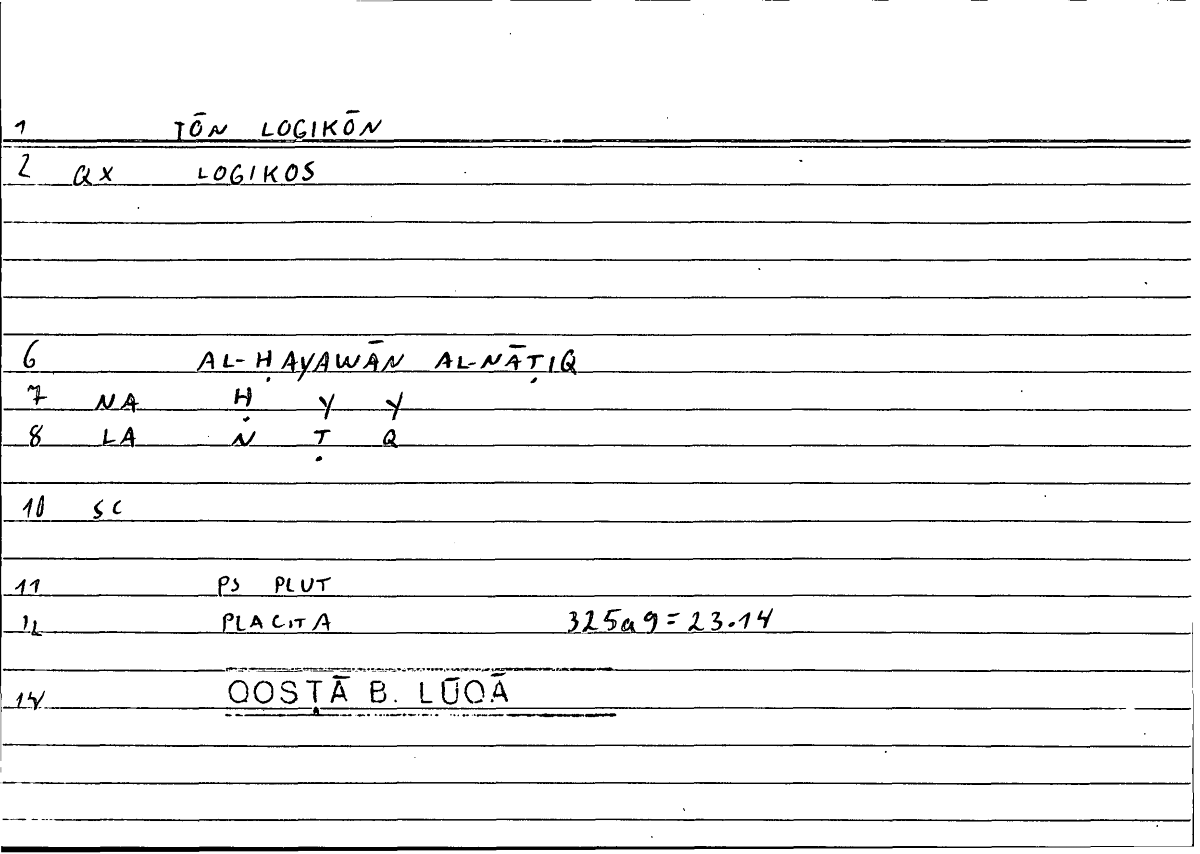 1 TŌN LOGIKŌN
2 QX LOGIKOS
6 AL-ḤAYAWĀN AL-NĀṬIQ
7 NA Ḥ Y Y
8 LA N Ṭ Q
10 SC
11 PS PLUT
12 PLACITA 325a9=23.14
14 QOSṬĀ B. LŪQĀ